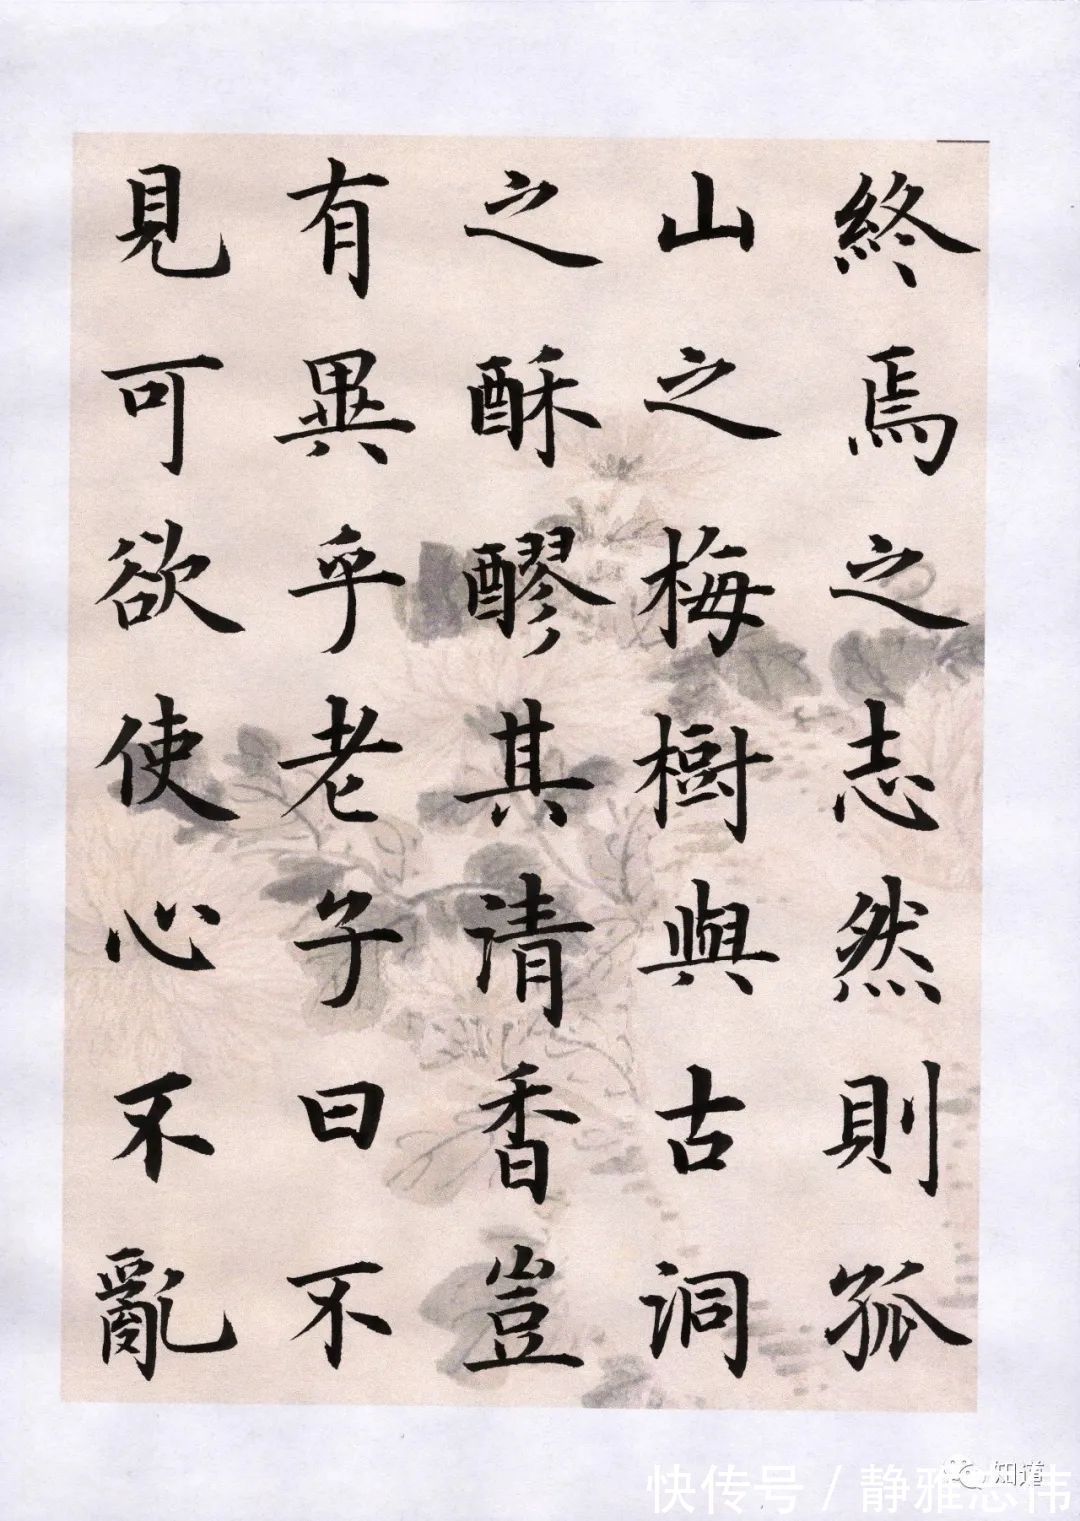 終焉之志然則孤
山之梅樹與古洞
之酥醪其清香豈
有異乎老子曰不
見可欲使心不亂
知道
快传号/静雅志伟